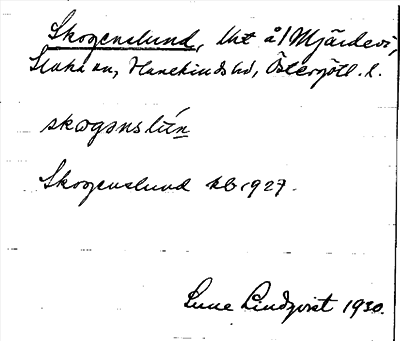 Skogenslund, lht å/Mjärdevi,
Slaka sn, Hanekinds hd, Östergötl. l.
skogənslún
Skogenslund kb 1927.
Sune Lindqvist 1930.